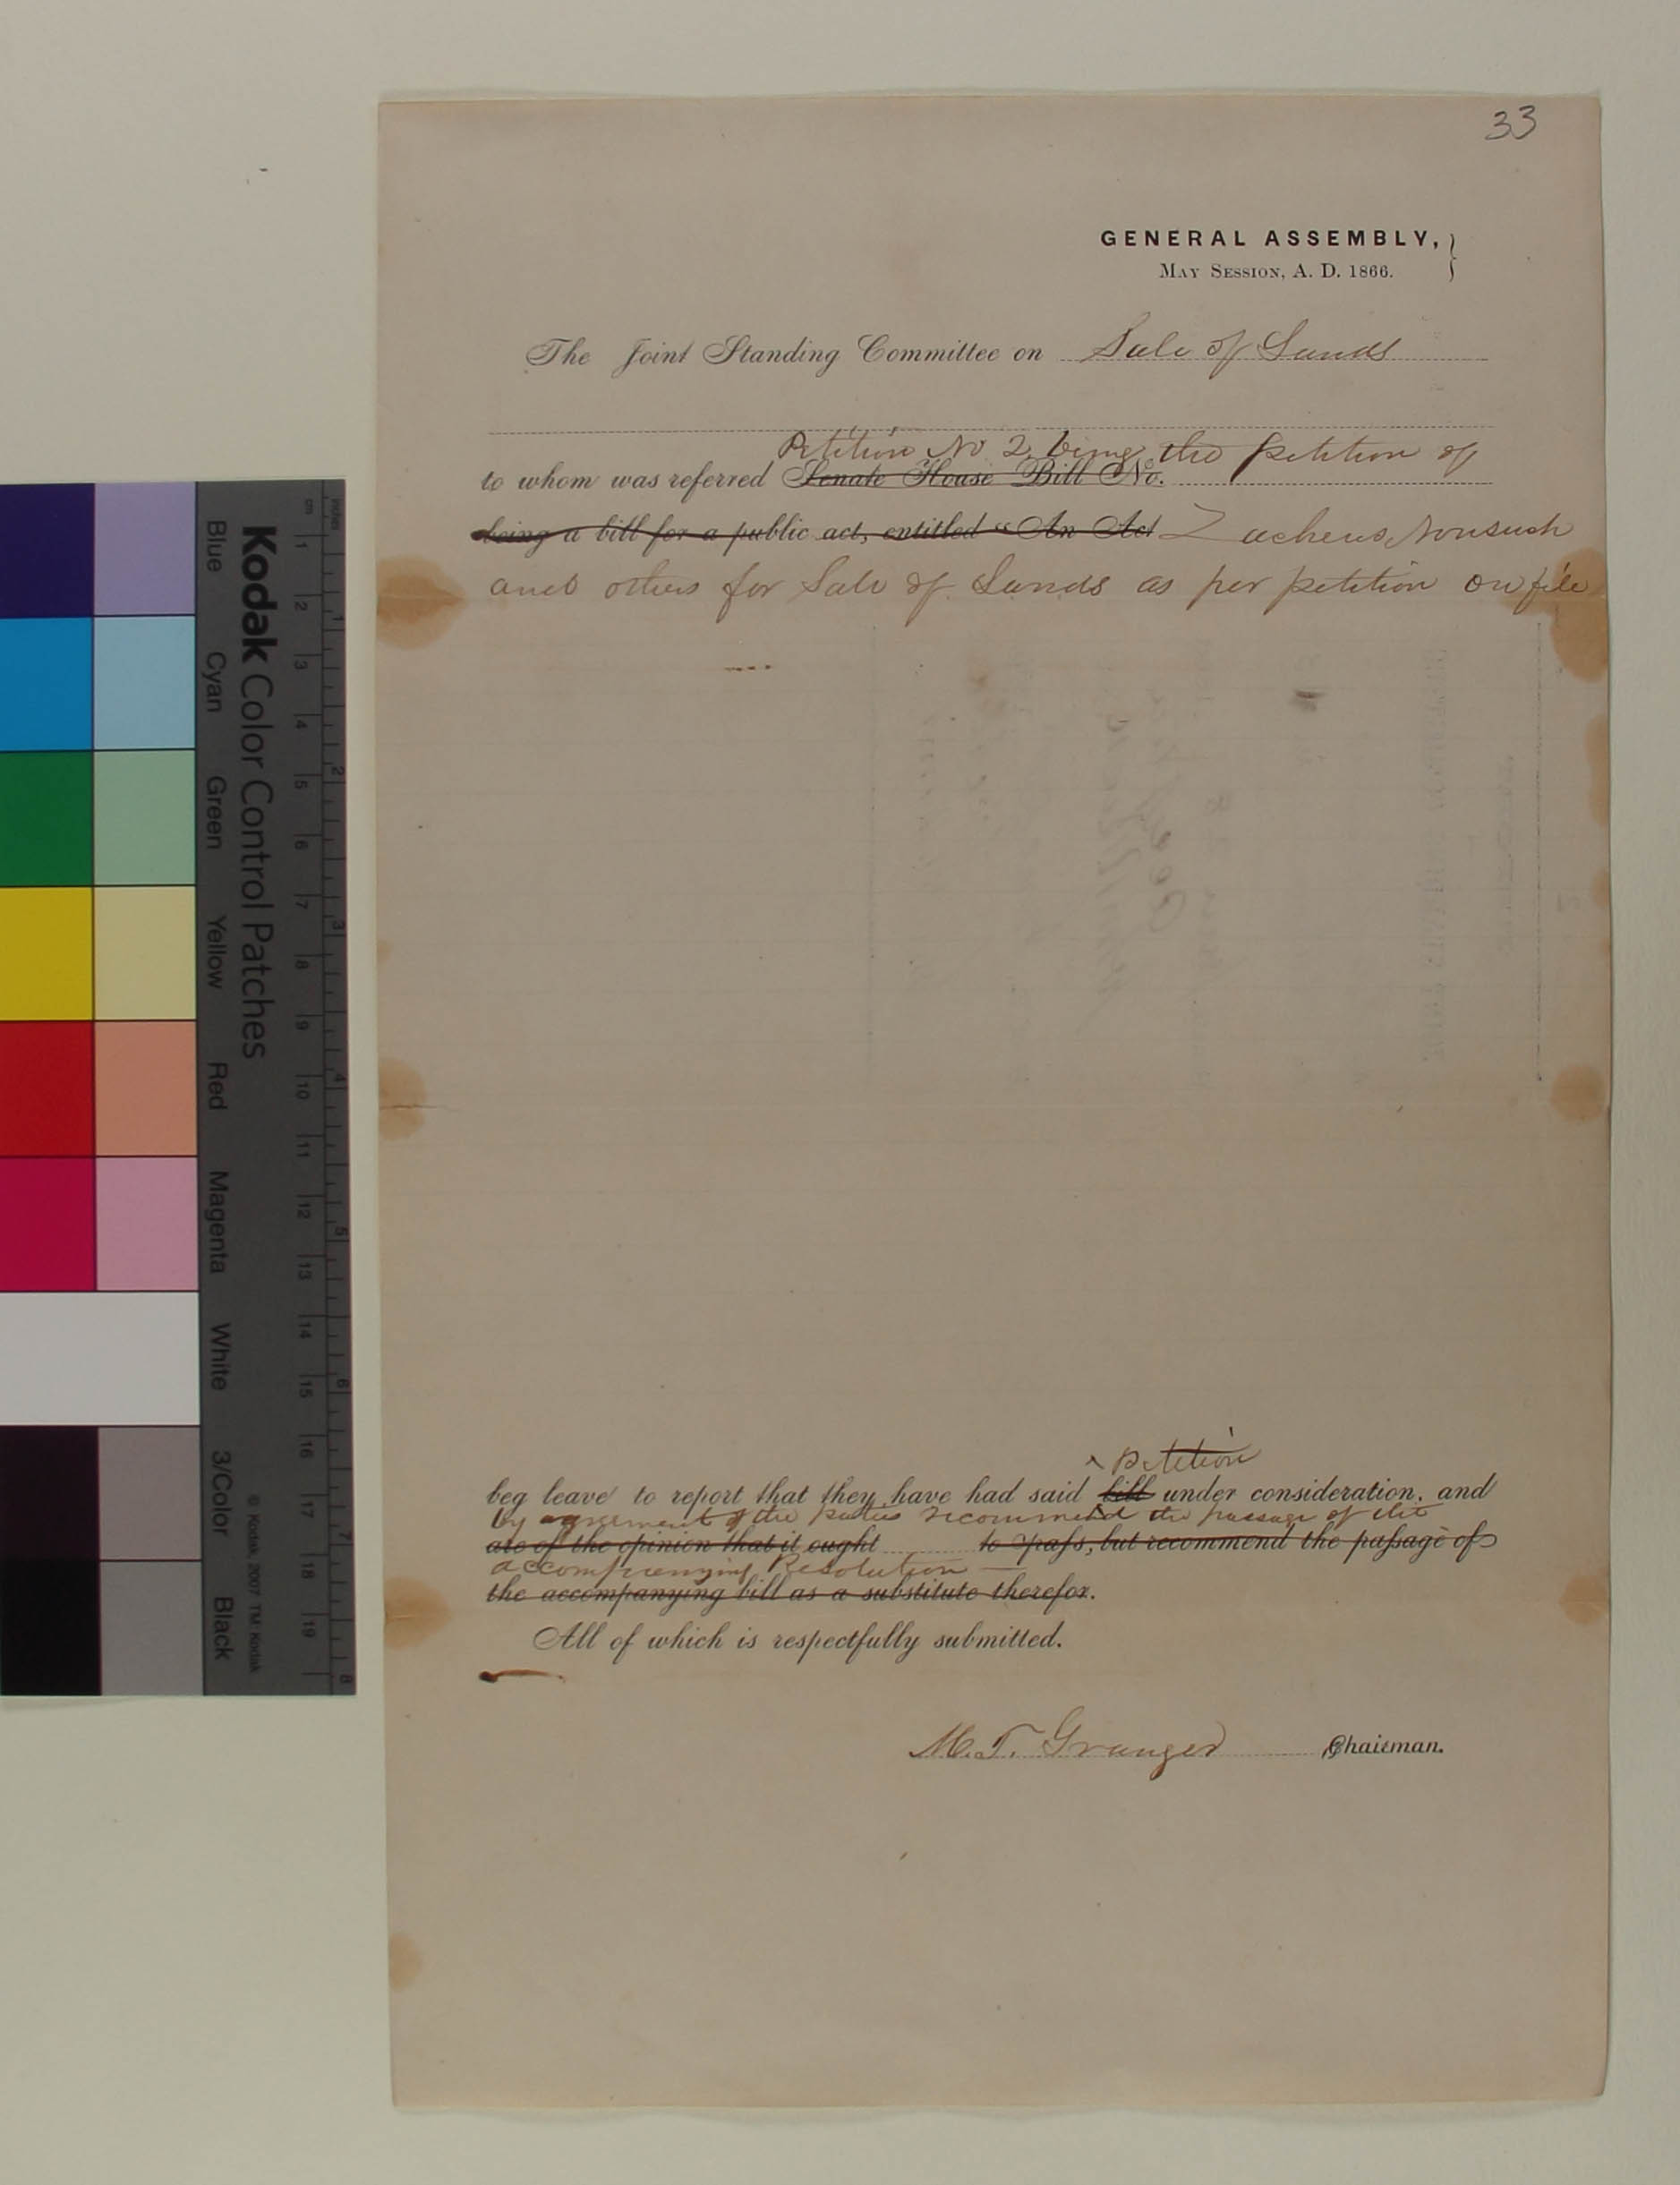 33
GENERAL ASSEMBLY,
MAY SESSION, A. D. 1866.
The Joint Standing Committee on Sale of Lands
Petition No 2, being the petition of
to whom was referred Senate House Bill No.
being a bill for a public act, entitled "An Act Zacheus Nonsuch
and others for Sale of Lands as per petition on file
Petition
beg leave to report that they have had said bill under consideration, and
by agreement of the parties recommend the passage of the
are of the opinion that it ought to pass, but recommend the passage of
accompanying Resolution
the accompanying bill as a substitute therefor.
All of which is respectfully submitted.
M. T. Granger Chairman.
Kodak Color Control Patches
Blue Cyan Green Yellow Red Magenta White 3/Color Black
© Kodak, 2007 TM: Kodak
cm 1 2 3 4 5 6 7 8 9 10 11 12 13 14 15 16 17 18 19
inches 1 2 3 4 5 6 7 8